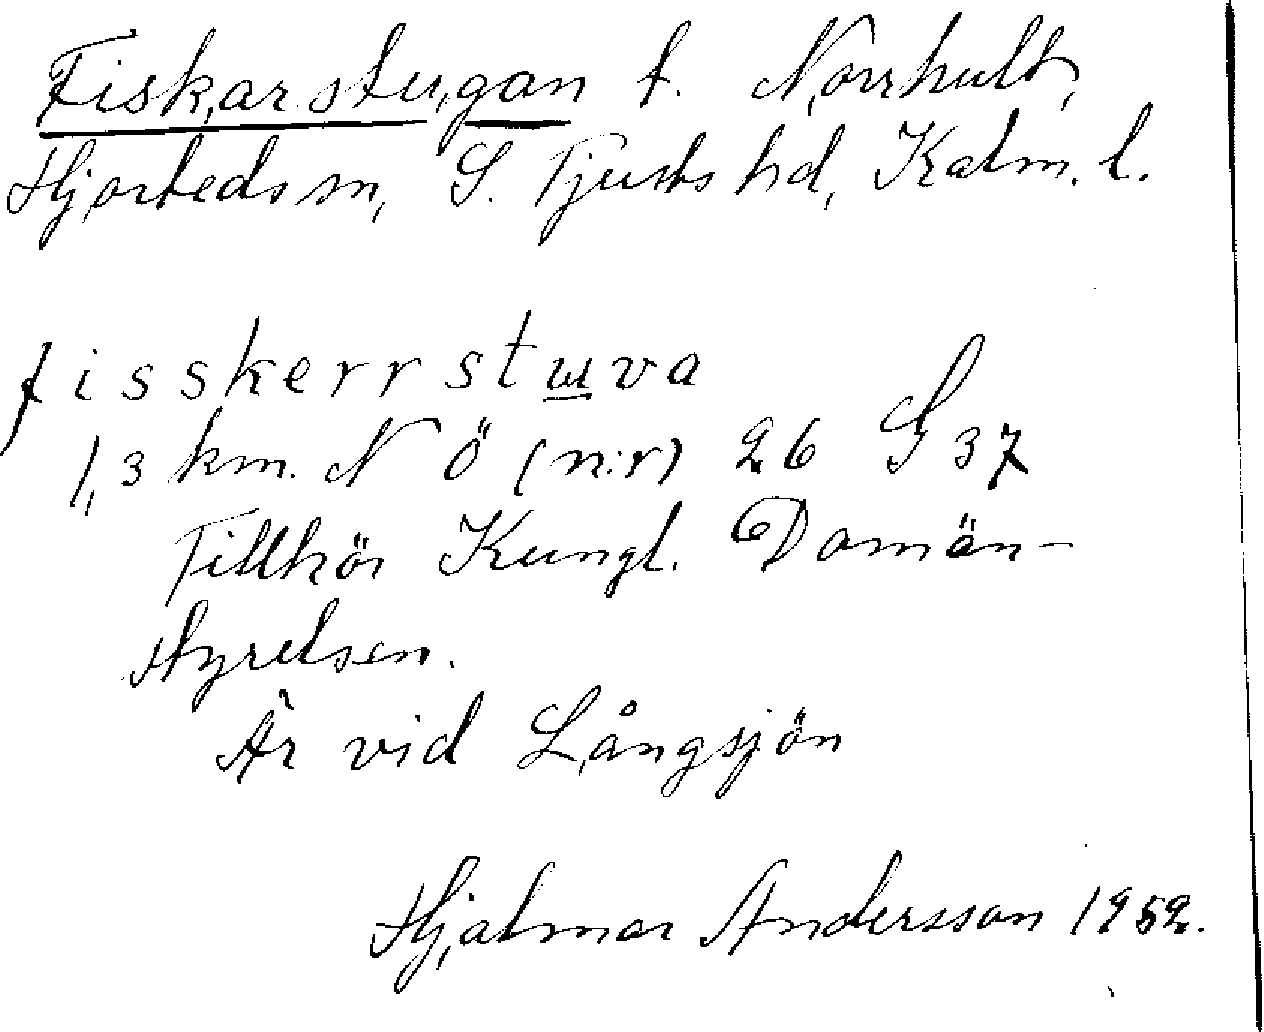 Fiskarstugan t. Norrhult,
Hjorteds sn, S. Tjusts hd, Kalm. l.
fisskerrstuva
1,3 km. N Ö (n:r) 26 G 37
Tillhör Kungl. Domän-
styrelsen.
Är vid Långsjön
Hjalmar Andersson 1952.